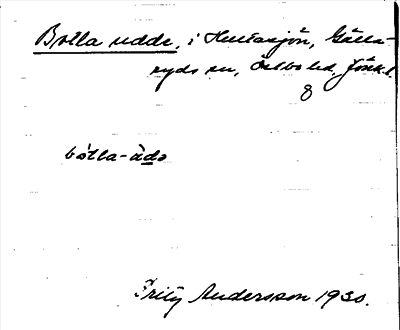 Bolla udde, i Hultasjön, Gälla-
ryds sn, Östbo hd, Jönk. l.
8
bòlla-ùdə
Fritz Andersson 1930.